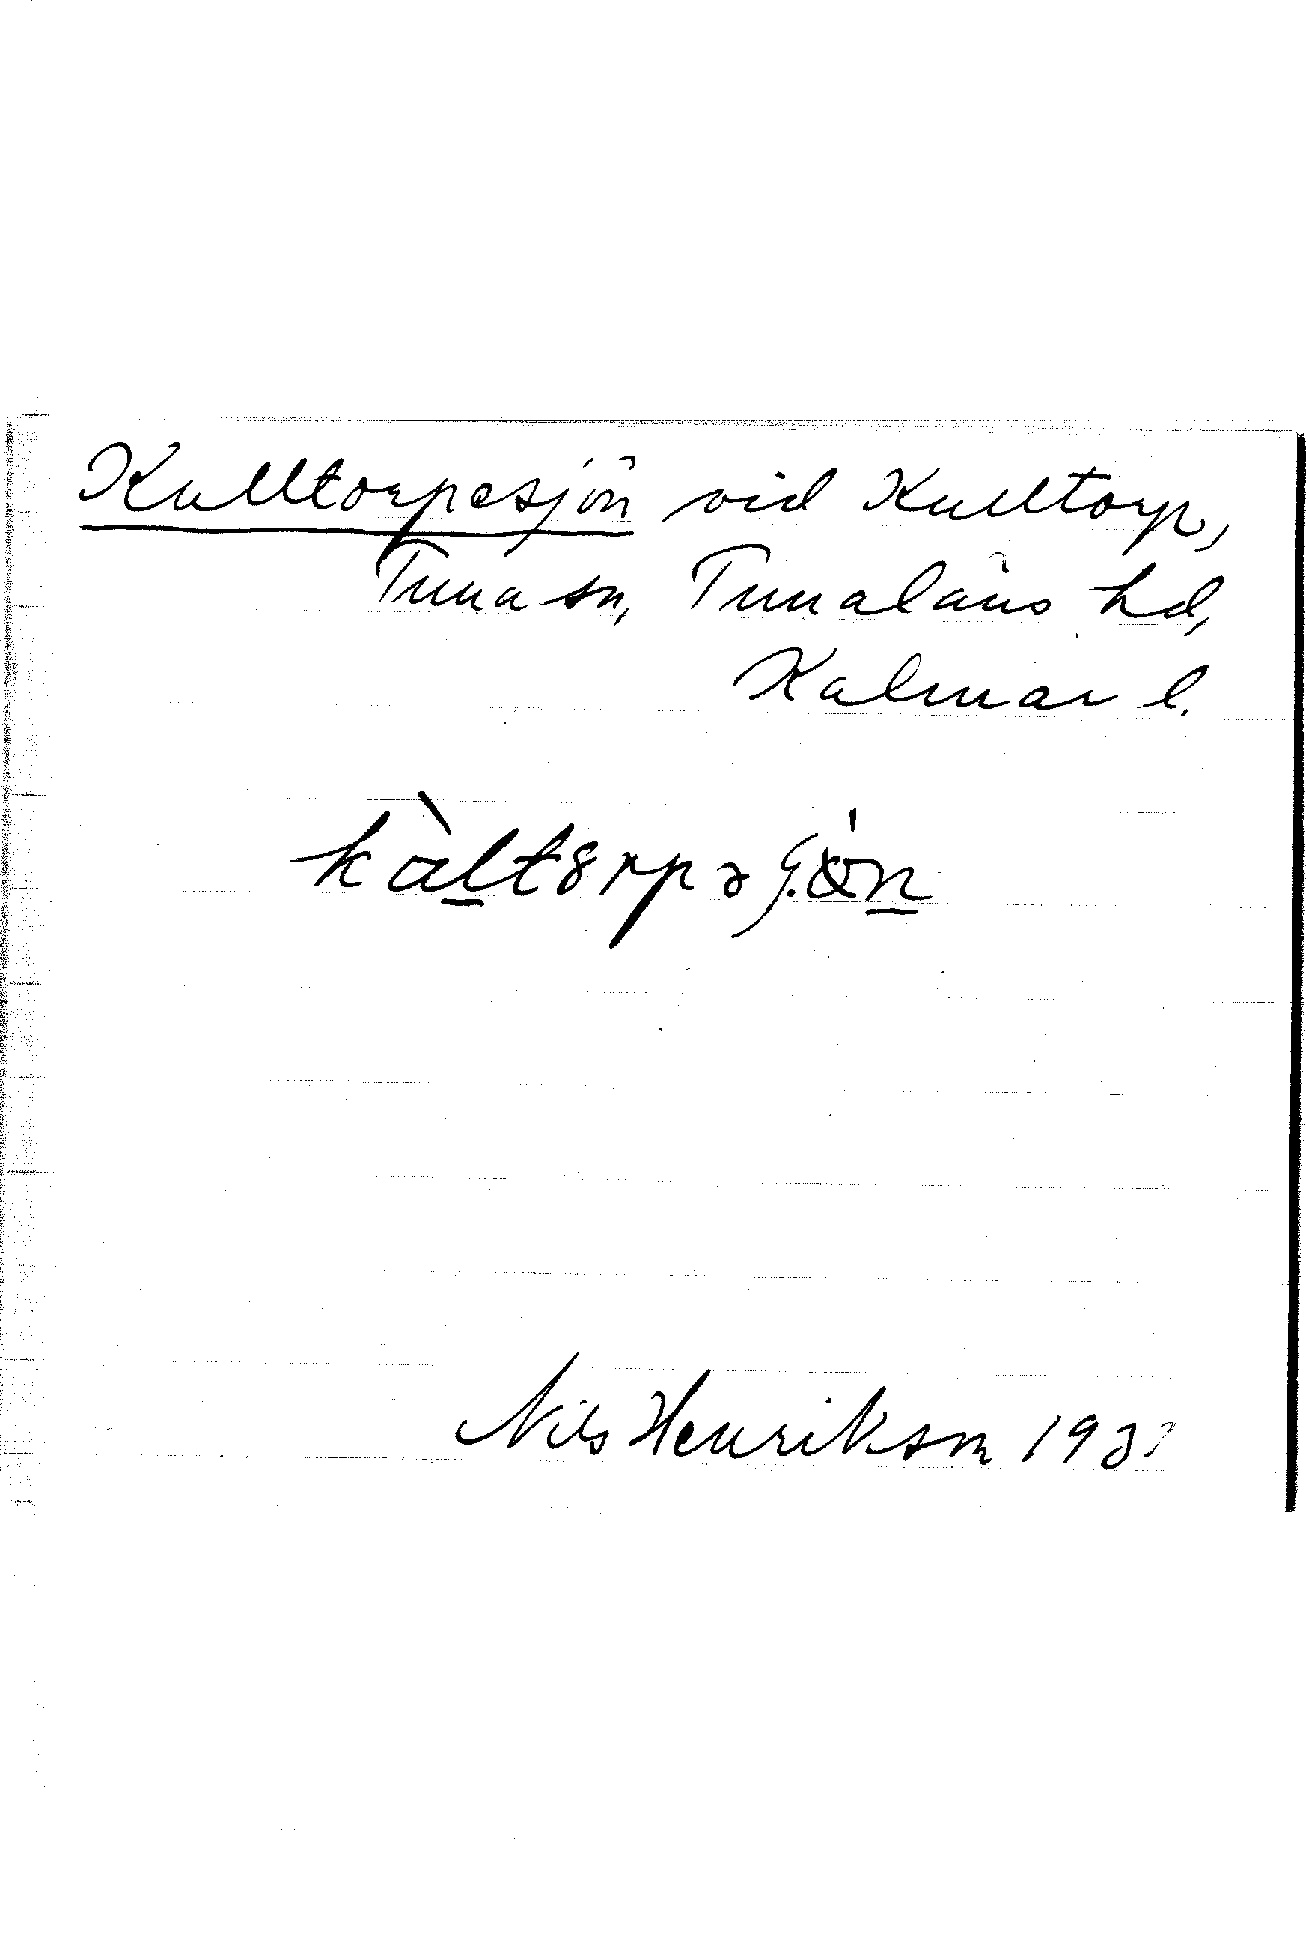 Kulltorpesjön vid Kulltorp,
Tuna sn, Tunaläns hd,
Kalmar l.
Nils Henrikson